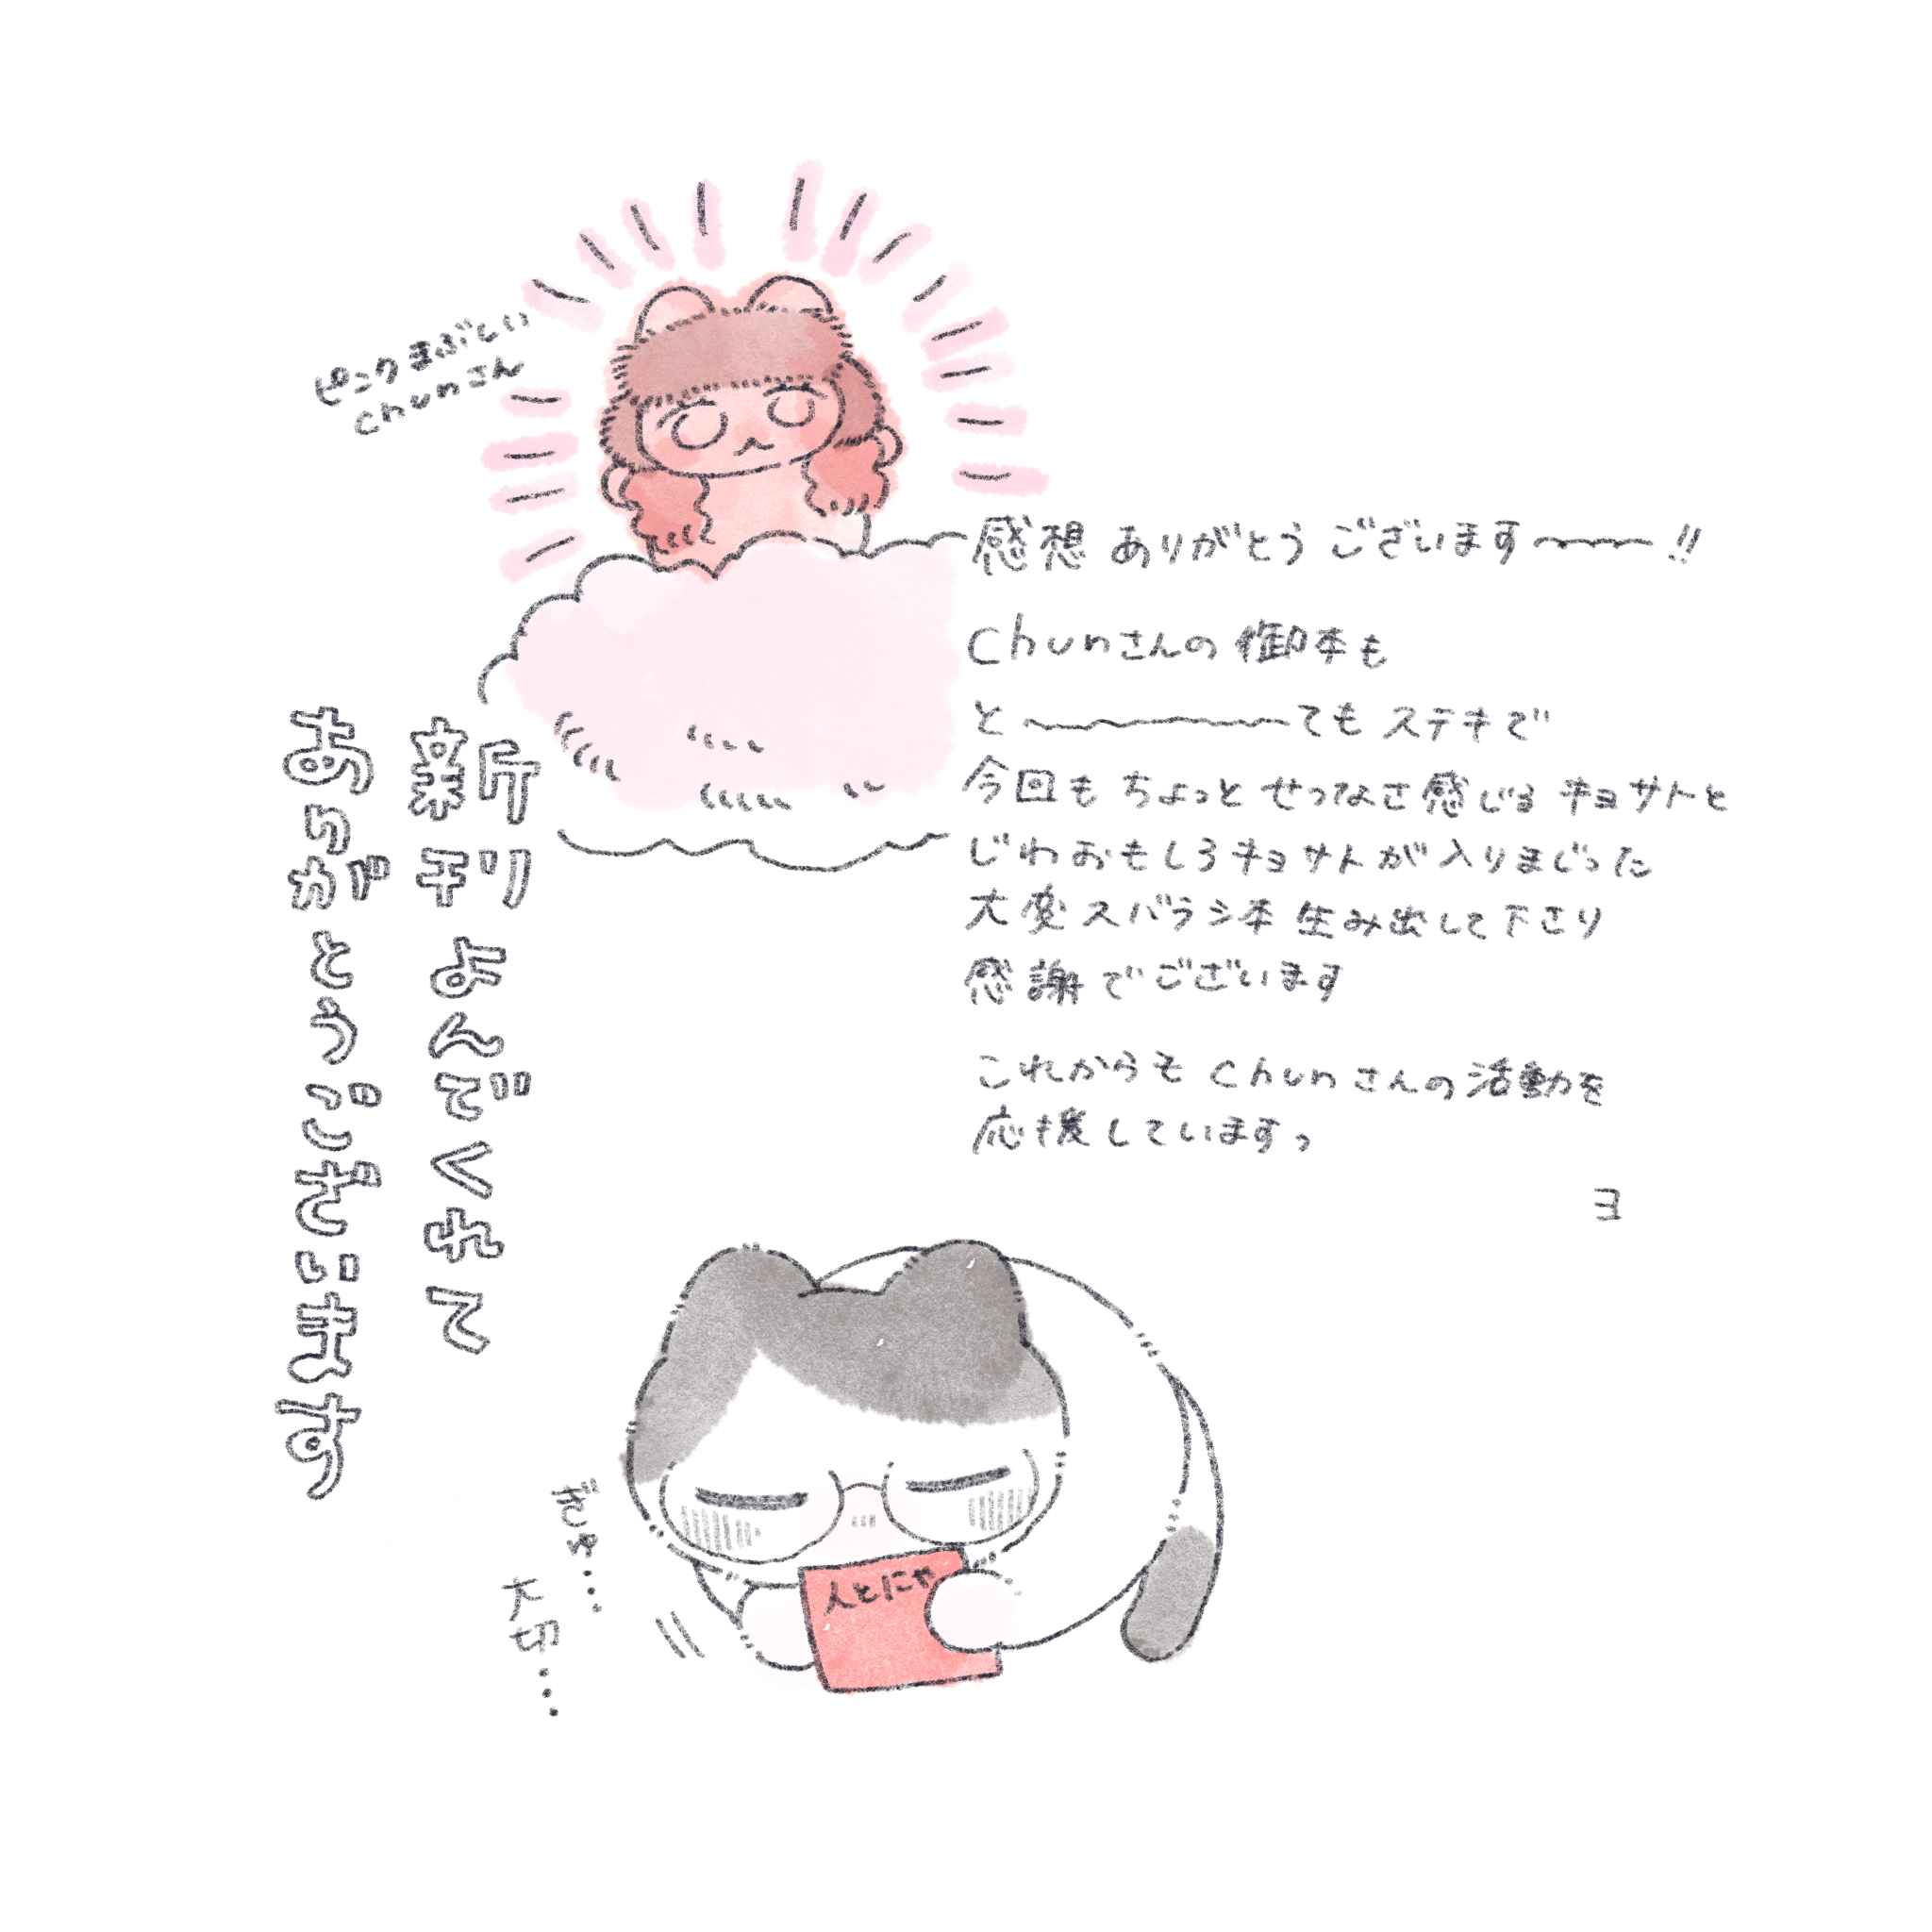 ピンクまぶしい
chunさん
感想ありがとうございます〜〜〜!!
chunさんの御本も
と〜〜〜〜〜てもステキで
今回もちょっとせつなさ感じるキョサトと
じわおもしろキョサトが入りまじった
大変スバラシ本生み出して下さり
感謝でございます
これからもchunさんの活動を
応援していますっ
ヨ
新刊よんでくれて
ありがとうございます
ぎゅ…
大切…
人とにゃ